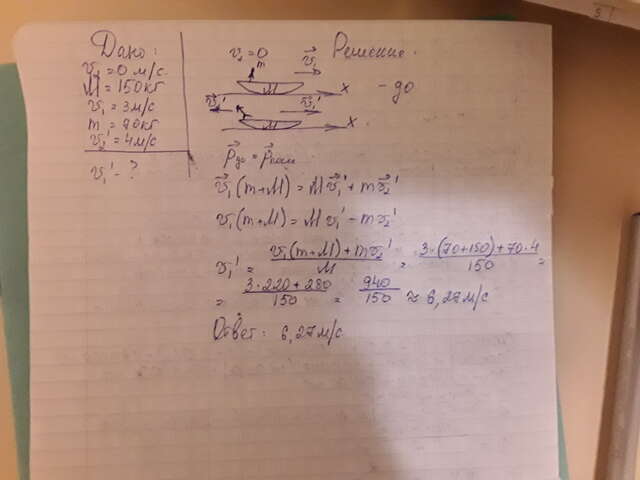 Дано:
v₂ = 0 м/с
M = 150кг
v₁ = 3м/с
m = 70кг
v₂' = 4м/с
v₁' - ?
v₂ = 0 v⃗₁ Решение.
m
M x - до
v⃗₂' v⃗₁'
M x
p⃗до = p⃗после
v⃗₁(m+M) = Mv⃗₁' + mv⃗₂'
v₁(m+M) = Mv₁' - mv₂'
v₁' = v₁(m+M) + mv₂' / M = 3·(70+150)+70·4 / 150 =
= 3·220+280 / 150 = 940 / 150 ≈ 6,27м/с
Ответ: 6,27м/с
5